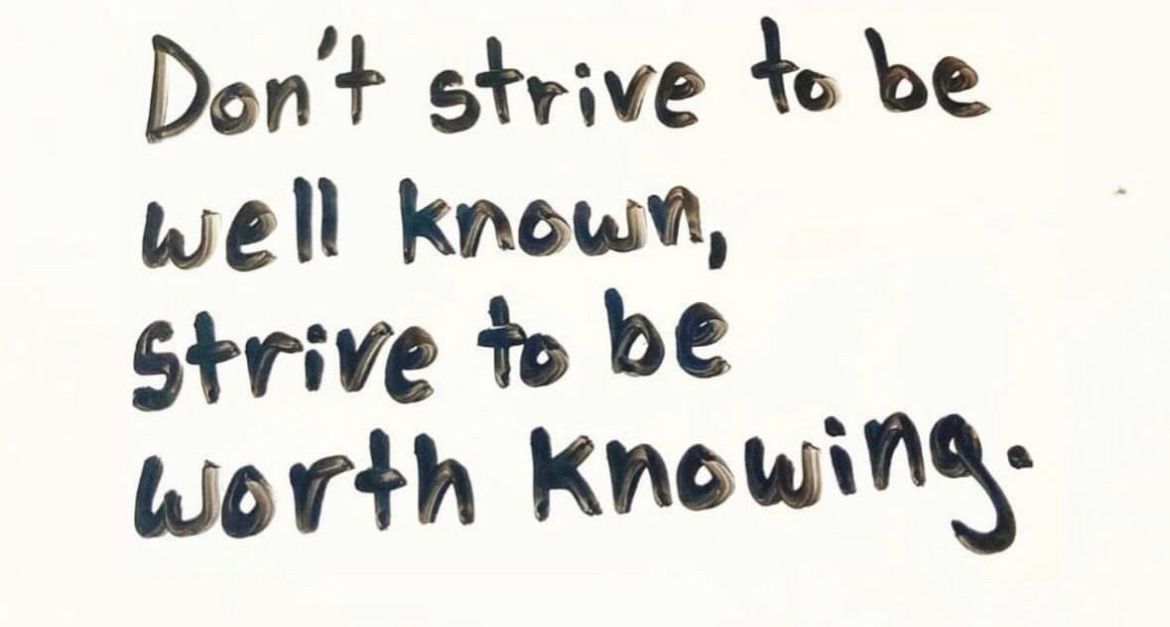 Don't strive to be
well known,
strive to be
worth knowing.